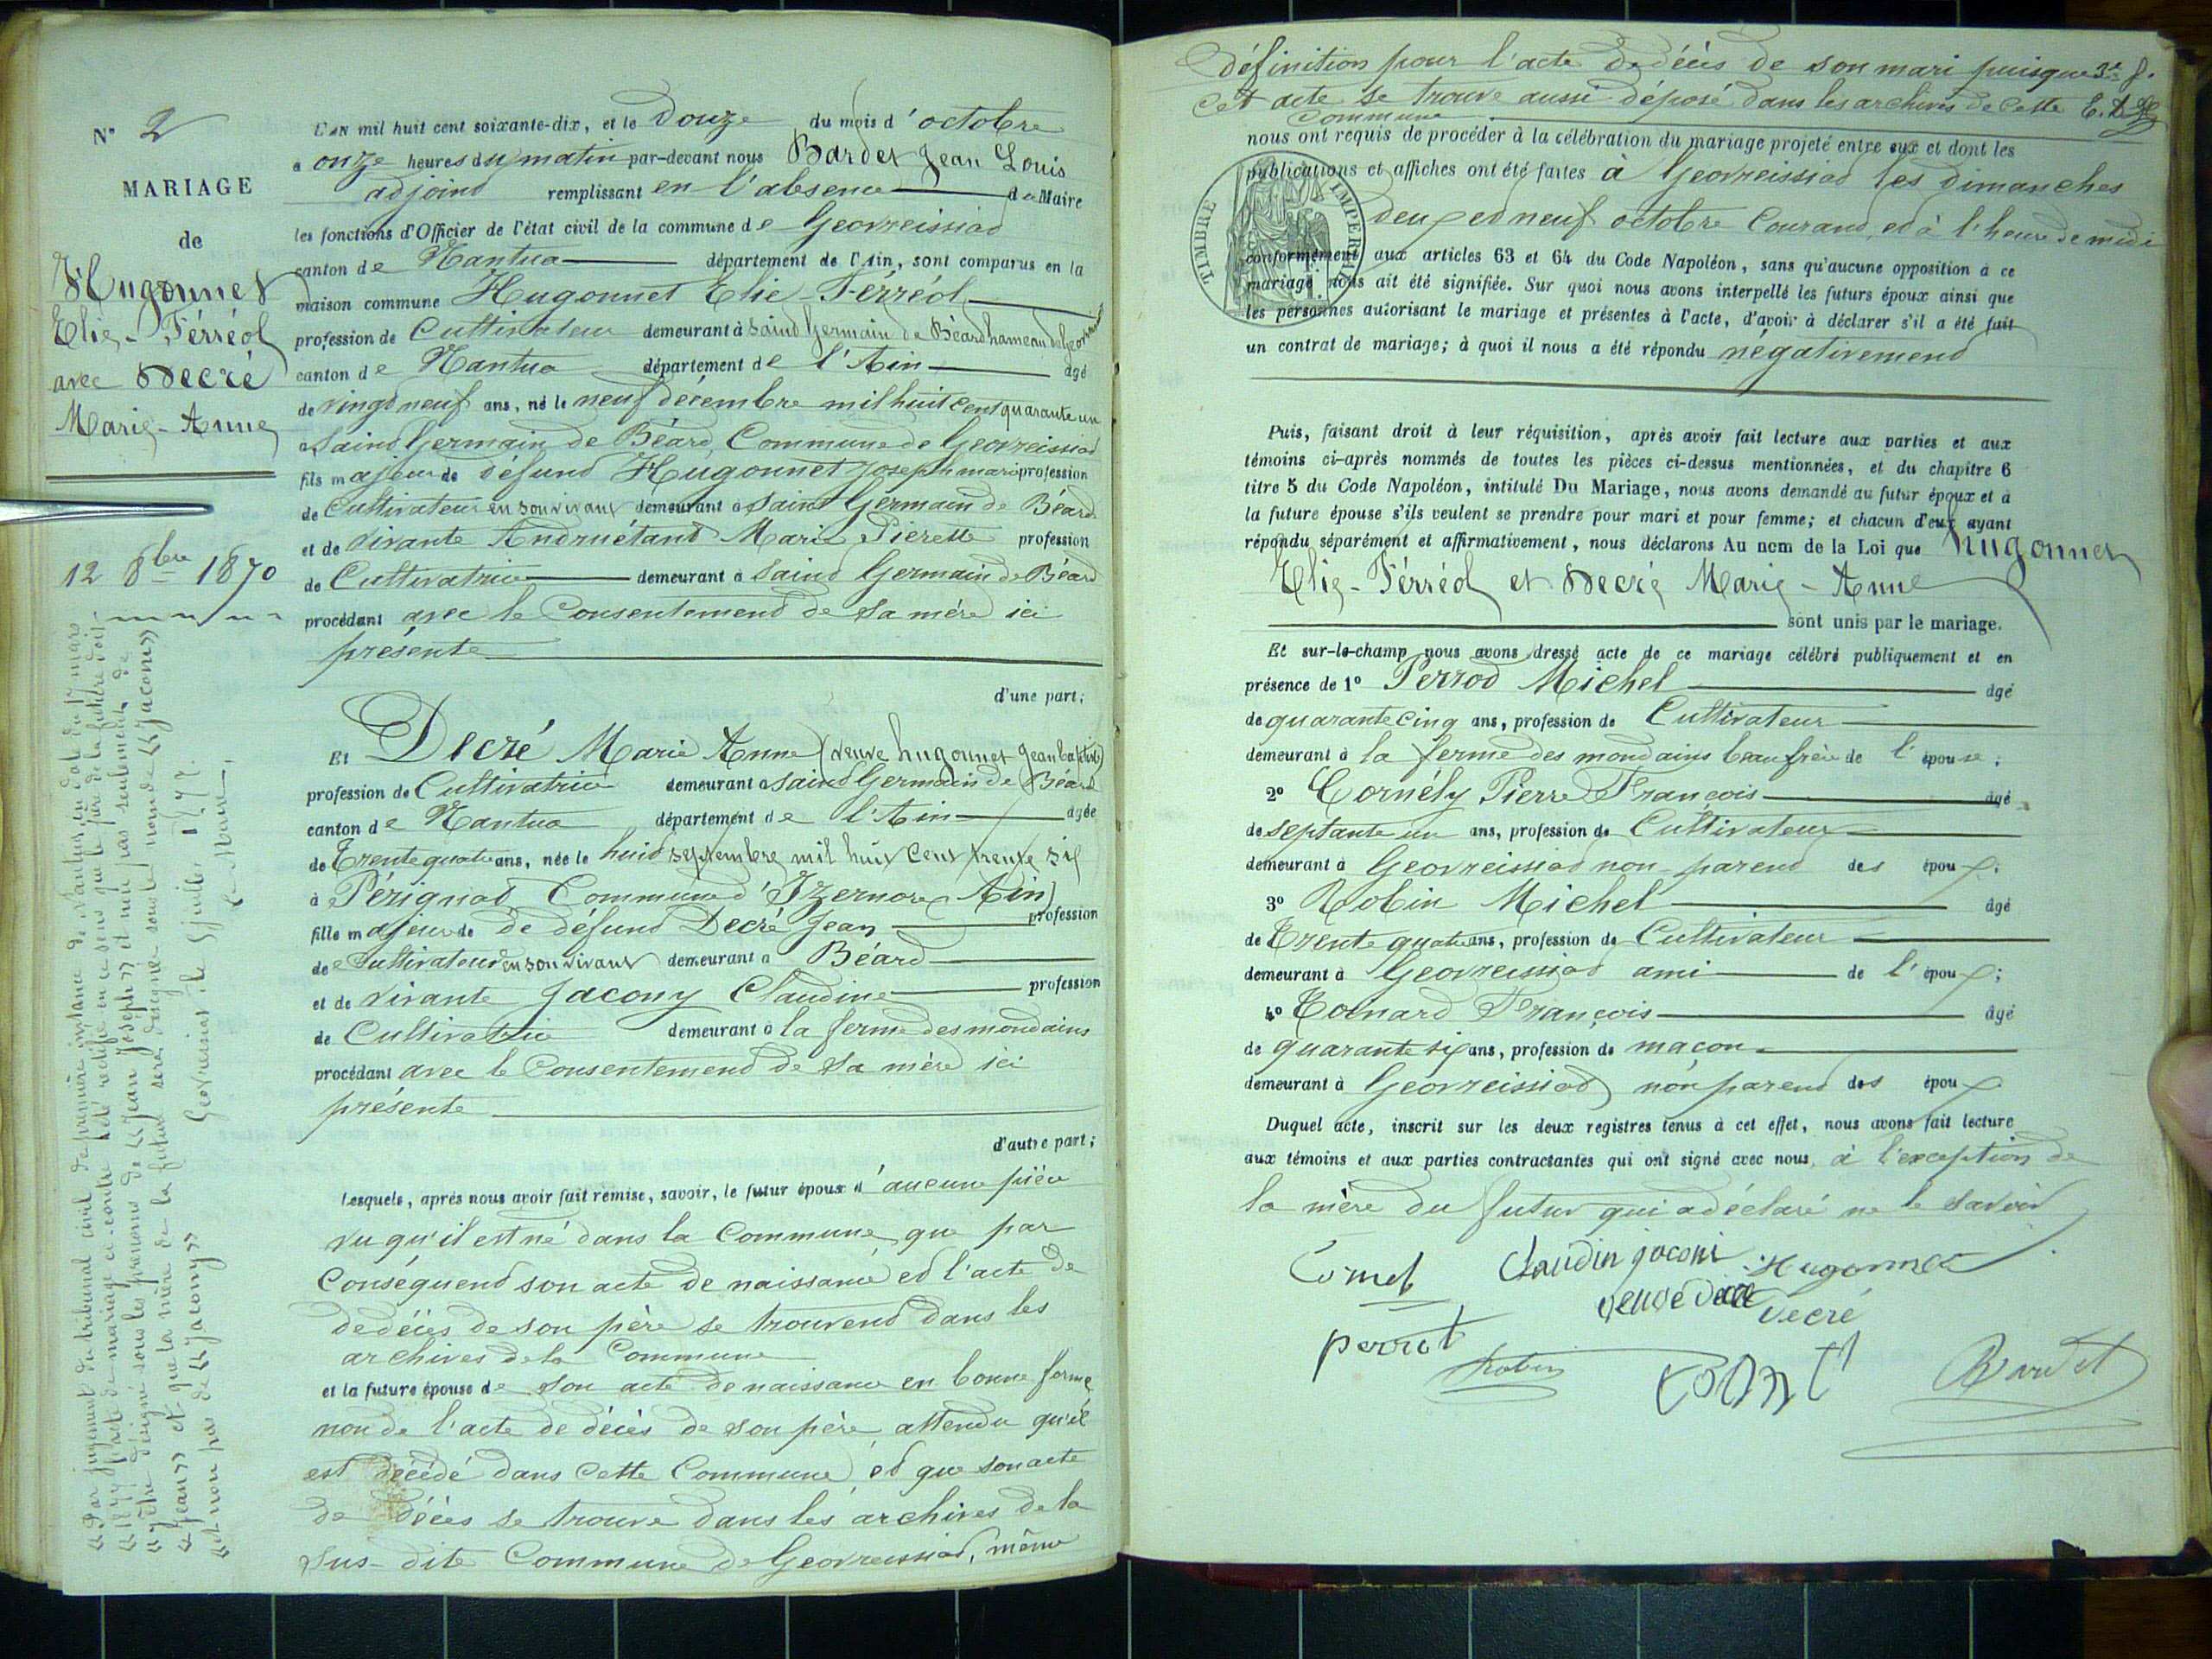 N° 2
MARIAGE
de
Hugonnet
Elie-Férréol
avec Decré
Marie-Anne
12 8bre 1870
L'AN mil huit cent soixante-dix, et le Douze du mois d'octobre
a onze heures du matin par-devant nous Bardet Jean Louis
adjoint remplissant en l'absence du Maire
les fonctions d'Officier de l'état civil de la commune de Geovreissiat
canton de Nantua département de l'Ain, sont comparus en la
maison commune Hugonnet Elie-Férréol
profession de Cultivateur demeurant à Saint Germain de Béard hameau de
canton de Nantua département de l'Ain âgé
de vingt neuf ans, né le neuf décembre mil huit cent quarante un
a Saint Germain de Béard, Commune de Geovreissiat
fils majeur de défunt Hugonnet Joseph marie profession
de Cultivateur en son vivant demeurant à Saint Germain de Béard
et de vivante Andruétant Marie Pierette profession
de Cultivatrice demeurant à Saint Germain de Béard
procédant avec le Consentement de sa mère ici
présente
d'une part;
Et Decré Marie Anne (veuve hugonnet Jean baptiste)
profession de Cultivatrice demeurant a Saint Germain de Béard
canton de Nantua département de l'Ain agée
de Trente quatre ans, née le huit septembre mil huit Cent trente six
à Pérignat Commune d'Izernore (Ain)
fille majeure de de défunt Decré Jean profession
de Cultivateur en son vivant demeurant a Béard
et de vivante Jacony Claudine profession
de Cultivatrice demeurant à la ferme des mondains
procédant avec le Consentement de sa mère ici
présente
d'autre part;
Lesquels, après nous avoir fait remise, savoir, le futur époux d'aucune pièce
vu qu'il est né dans la Commune, que par
Conséquent son acte de naissance et l'acte de
de décès de son père se trouvent dans les
archives de la Commune
et la future épouse de son acte de naissance en bonne forme
non de l'acte de décès de son père, attendu qu'il
est décédé dans cette Commune, et que son acte
de décès se trouve dans les archives de la
sus-dite Commune de Geovreissiat, même
« Par jugement du tribunal civil de première instance de Nantua, en date du 17 mars
« 1877, l'acte de mariage ci-contre a été rectifié en ce sens que le père de la future doit
« être désigné sous les prénoms de « Jean Joseph » et non pas seulement de
« Jean » et que la mère de la future sera désignée sous le nom de « Jaconis »
« et non pas de « Jacony »
Geovreissiat, le 5 juillet 1877.
Le Maire,
définition pour l'acte de décès de son mari puisque 3e f.
cet acte se trouve aussi déposé dans les archives de cette
Commune
nous ont requis de procéder à la célébration du mariage projeté entre eux et dont les
publications et affiches ont été faites à Geovreissiat les dimanches
deux et neuf octobre Courant, et à l'heure de midi
conformément aux articles 63 et 64 du Code Napoléon, sans qu'aucune opposition à ce
mariage nous ait été signifiée. Sur quoi nous avons interpellé les futurs époux ainsi que
les personnes autorisant le mariage et présentes à l'acte, d'avoir à déclarer s'il a été fait
un contrat de mariage; à quoi il nous a été répondu négativement
TIMBRE IMPERIAL
Puis, faisant droit à leur réquisition, après avoir fait lecture aux parties et aux
témoins ci-après nommés de toutes les pièces ci-dessus mentionnées, et du chapitre 6
titre 5 du Code Napoléon, intitulé Du Mariage, nous avons demandé au futur époux et à
la future épouse s'ils veulent se prendre pour mari et pour femme; et chacun d'eux ayant
répondu séparément et affirmativement, nous déclarons Au nom de la Loi que hugonnet
Elie-Férréol et Decré Marie-Anne
sont unis par le mariage.
Et sur-le-champ nous avons dressé acte de ce mariage célébré publiquement et en
présence de 1° Perrod Michel âgé
de quarante cinq ans, profession de Cultivateur
demeurant à la ferme des mondains beau frère de l'épouse;
2° Cornély Pierre François âgé
de septante un ans, profession de Cultivateur
demeurant à Geovreissiat non parent des époux.
3° Robin Michel âgé
de Trente quatre ans, profession de Cultivateur
demeurant à Geovreissiat ami de l'époux;
4° Toinard François âgé
de quarante six ans, profession de maçon
demeurant à Geovreissiat non parent des époux
Duquel acte, inscrit sur les deux registres tenus à cet effet, nous avons fait lecture
aux témoins et aux parties contractantes qui ont signé avec nous, à l'exception de
la mère du futur qui a déclaré ne le savoir
Claudin jaconi Hugonnet
veuve decre Decré
perrot
Robin Bardet